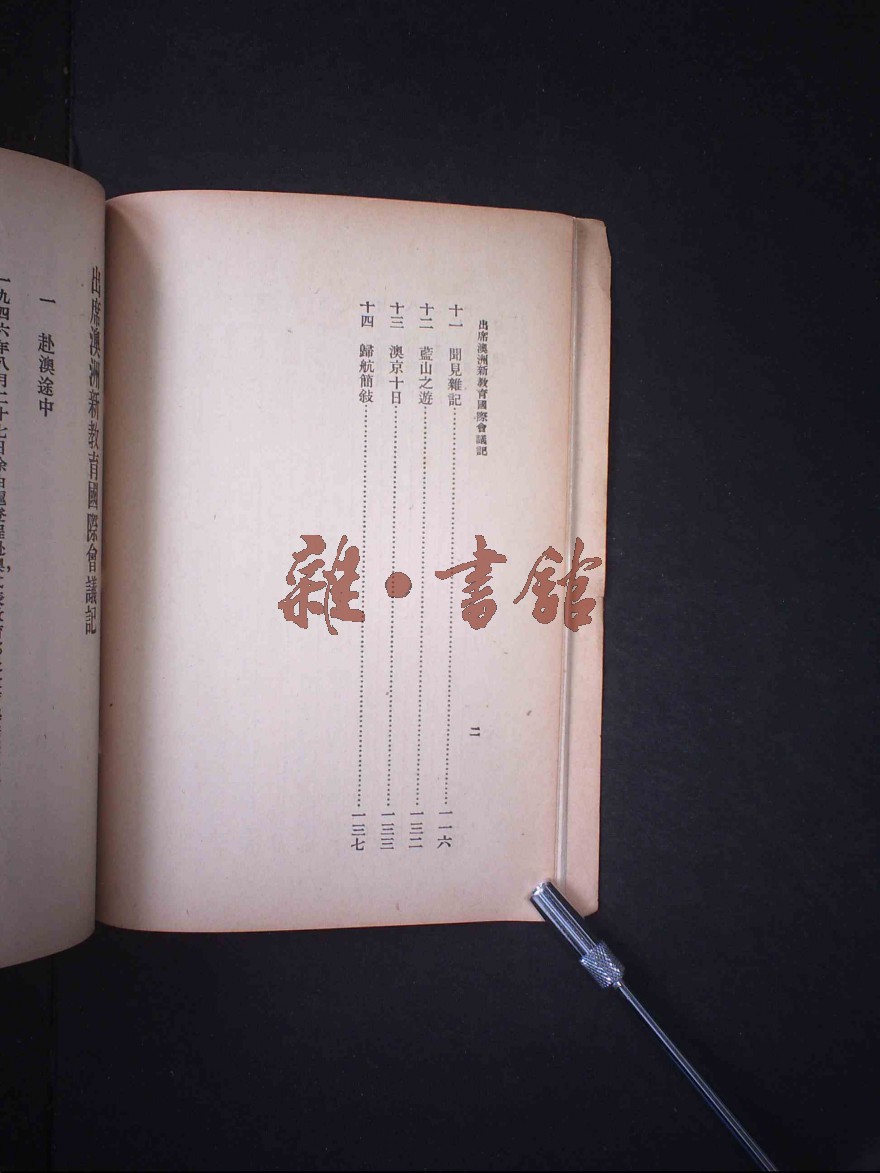 出席澳洲新教育國際會議記
二
十一 聞見雜記 一一六
十二 藍山之遊 一三二
十三 澳京十日 一三三
十四 歸航簡敍 一三七
雜·書館
出席澳洲新教育國際會議記
一 赴澳途中
一九四六年八月二十七日余由滬